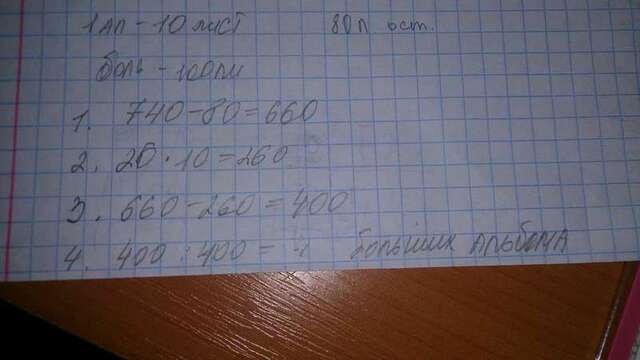 1 ал - 10 лист 80л ост.
боль - 100ли
1. 740-80=660
2. 26·10=260
3. 660-260=400
4. 400:400= 4 больших альбома